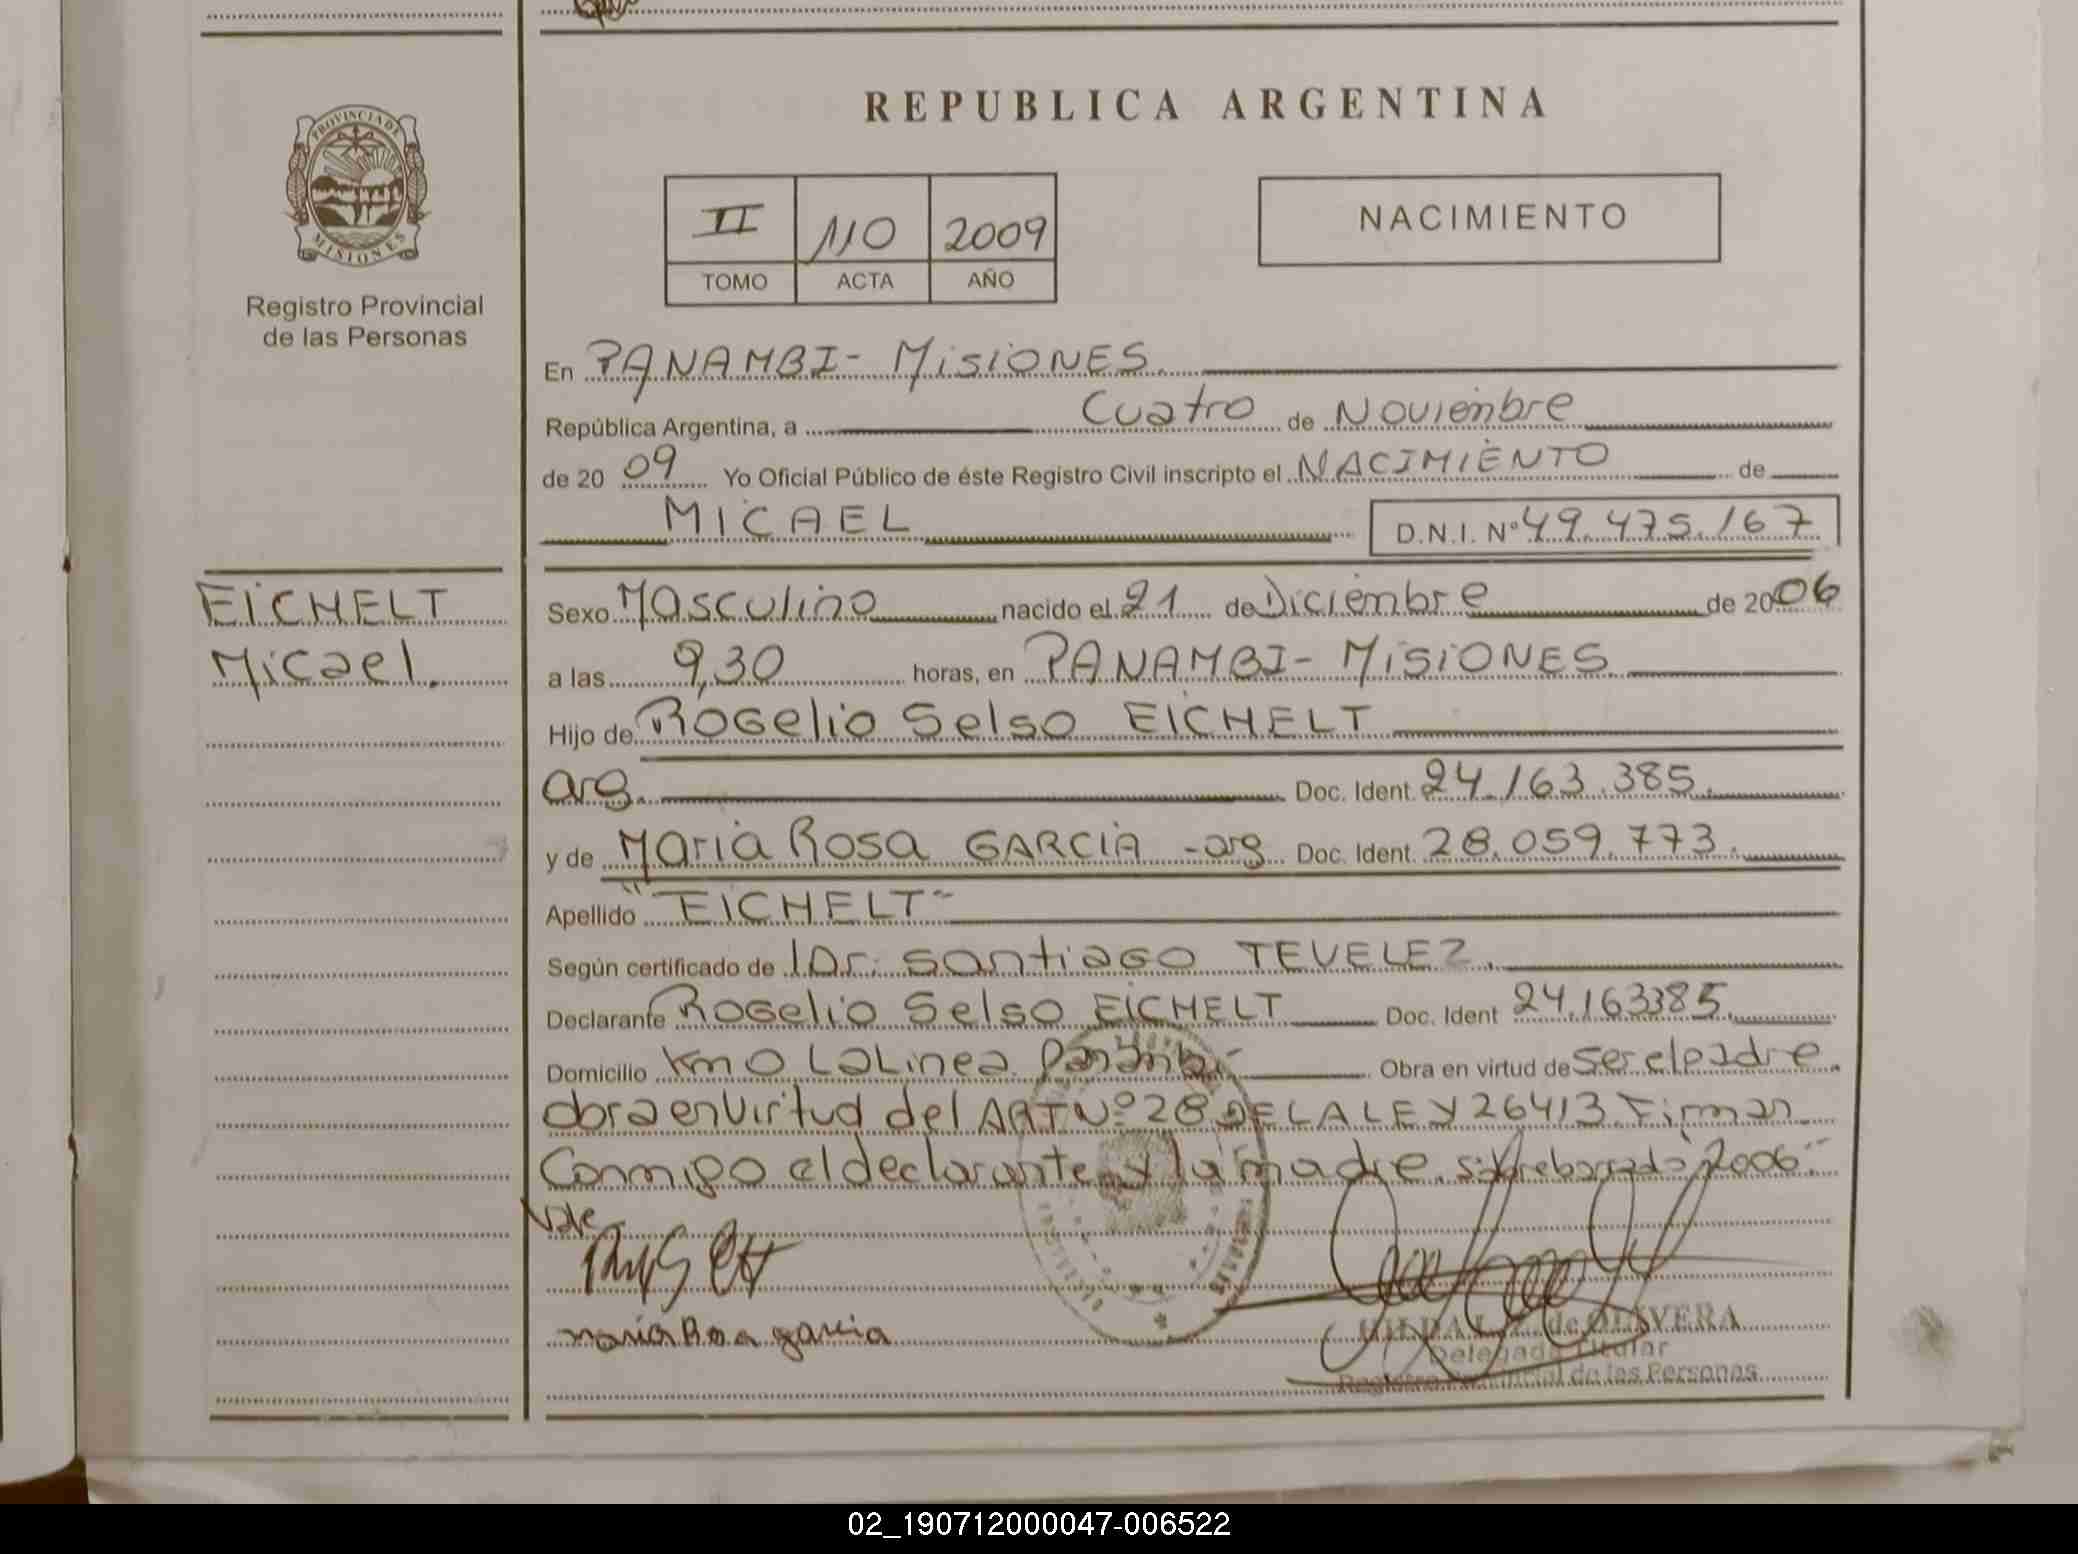 REPUBLICA ARGENTINA
PROVINCIA DE
MISIONES
Registro Provincial
de las Personas
II 110 2009
TOMO ACTA AÑO
NACIMIENTO
En PANAMBI - MISIONES.
República Argentina, a Cuatro de Noviembre
de 2009 Yo Oficial Público de éste Registro Civil inscripto el NACIMIENTO de
MICAEL D.N.I. Nº 49.475.167
EICHELT
Micael.
Sexo Masculino nacido el 21 de Diciembre de 2006
a las 9,30 horas, en PANAMBI - MISIONES
Hijo de Rogelio Selso EICHELT
arg. Doc. Ident. 24.163.385.
y de Maria Rosa GARCIA - arg Doc. Ident. 28.059.773.
Apellido "EICHELT"
Según certificado de Dr. Santiago TEVELEZ.
Declarante Rogelio Selso EICHELT Doc. Ident 24.163385.
Domicilio Km 0 La Linea Panambi Obra en virtud de ser el padre.
obra en virtud del ART Nº 28 DE LA LEY 26413. Firman
Conmigo el declarante y la madre. sobreborrado "2006".
Vale
maria Rosa garcia
de OLIVERA
Delegada Titular
Registro Provincial de las Personas
02_190712000047-006522